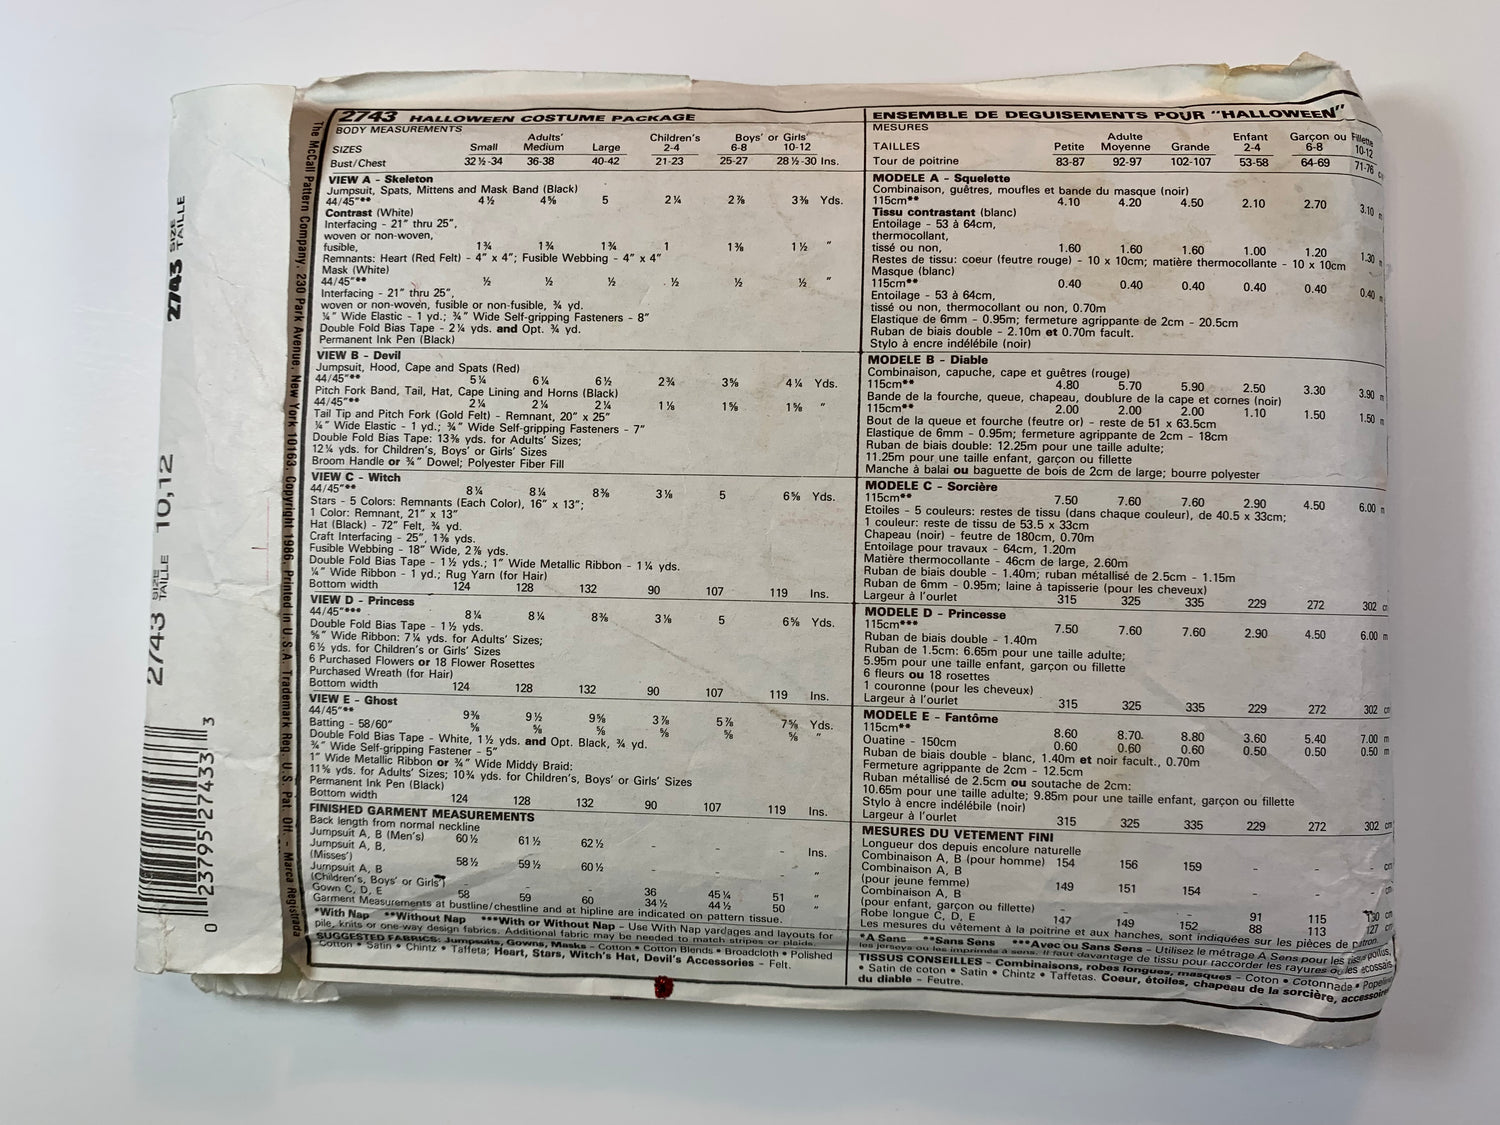 2743 SIZE TAILLE
2743 SIZE TAILLE 10,12
0 23795 27433 3
The McCall Pattern Company, 230 Park Avenue, New York 10163. Copyright 1986, Printed in U.S.A. Trademark Reg. U.S. Pat. Off. - Marca Registrada
2743 HALLOWEEN COSTUME PACKAGE
BODY MEASUREMENTS
Adults' Children's Boys' or Girls'
SIZES Small Medium Large 2-4 6-8 10-12
Bust/Chest 32½-34 36-38 40-42 21-23 25-27 28½-30 Ins.
VIEW A - Skeleton
Jumpsuit, Spats, Mittens and Mask Band (Black)
44/45"** 4½ 4⅝ 5 2¼ 2⅞ 3⅜ Yds.
Contrast (White)
Interfacing - 21" thru 25",
woven or non-woven,
fusible, 1¾ 1¾ 1¾ 1 1⅜ 1½ "
Remnants: Heart (Red Felt) - 4" x 4"; Fusible Webbing - 4" x 4"
Mask (White)
44/45"** ½ ½ ½ ½ ½ ½ "
Interfacing - 21" thru 25",
woven or non-woven, fusible or non-fusible, ¾ yd.
¼" Wide Elastic - 1 yd.; ¾" Wide Self-gripping Fasteners - 8"
Double Fold Bias Tape - 2¼ yds. and Opt. ¾ yd.
Permanent Ink Pen (Black)
VIEW B - Devil
Jumpsuit, Hood, Cape and Spats (Red)
44/45"** 5¼ 6¼ 6½ 2¾ 3⅝ 4¼ Yds.
Pitch Fork Band, Tail, Hat, Cape Lining and Horns (Black)
44/45"** 2¼ 2¼ 2¼ 1⅛ 1⅝ 1⅝ "
Tail Tip and Pitch Fork (Gold Felt) - Remnant, 20" x 25"
¼" Wide Elastic - 1 yd.; ¾" Wide Self-gripping Fasteners - 7"
Double Fold Bias Tape: 13⅜ yds. for Adults' Sizes;
12¼ yds. for Children's, Boys' or Girls' Sizes
Broom Handle or ¾" Dowel; Polyester Fiber Fill
VIEW C - Witch
44/45"** 8¼ 8¼ 8⅜ 3⅛ 5 6⅝ Yds.
Stars - 5 Colors: Remnants (Each Color), 16" x 13";
1 Color: Remnant, 21" x 13"
Hat (Black) - 72" Felt, ¾ yd.
Craft Interfacing - 25", 1⅜ yds.
Fusible Webbing - 18" Wide, 2⅞ yds.
Double Fold Bias Tape - 1½ yds.; 1" Wide Metallic Ribbon - 1¼ yds.
¼" Wide Ribbon - 1 yd.; Rug Yarn (for Hair)
Bottom width 124 128 132 90 107 119 Ins.
VIEW D - Princess
44/45"*** 8¼ 8¼ 8⅜ 3⅛ 5 6⅝ Yds.
Double Fold Bias Tape - 1½ yds.
⅝" Wide Ribbon: 7¼ yds. for Adults' Sizes;
6½ yds. for Children's or Girls' Sizes
6 Purchased Flowers or 18 Flower Rosettes
Purchased Wreath (for Hair)
Bottom width 124 128 132 90 107 119 Ins.
VIEW E - Ghost
44/45"** 9⅜ 9½ 9⅝ 3⅞ 5⅞ 7⅝ Yds.
Batting - 58/60" ⅝ ⅝ ⅝ ⅝ ⅝ ⅝ "
Double Fold Bias Tape - White, 1½ yds. and Opt. Black, ¾ yd.
¾" Wide Self-gripping Fastener - 5"
1" Wide Metallic Ribbon or ¾" Wide Middy Braid:
11⅝ yds. for Adults' Sizes; 10¾ yds. for Children's, Boys' or Girls' Sizes
Permanent Ink Pen (Black)
Bottom width 124 128 132 90 107 119 Ins.
FINISHED GARMENT MEASUREMENTS
Back length from normal neckline
Jumpsuit A, B (Men's) 60½ 61½ 62½ - - - Ins.
Jumpsuit A, B,
(Misses') 58½ 59½ 60½ - - - "
Jumpsuit A, B
(Children's, Boys' or Girls') - - - 36 45¼ 51 "
Gown C, D, E 58 59 60 34½ 44½ 50 "
Garment Measurements at bustline/chestline and at hipline are indicated on pattern tissue.
*With Nap **Without Nap ***With or Without Nap - Use With Nap yardages and layouts for
pile, knits or one-way design fabrics. Additional fabric may be needed to match stripes or plaids.
SUGGESTED FABRICS: Jumpsuits, Gowns, Masks - Cotton • Cotton Blends • Broadcloth • Polished
Cotton • Satin • Chintz • Taffeta; Heart, Stars, Witch's Hat, Devil's Accessories - Felt.
ENSEMBLE DE DEGUISEMENTS POUR "HALLOWEEN"
MESURES
Adulte Enfant Garçon ou Fillette
TAILLES Petite Moyenne Grande 2-4 6-8 10-12
Tour de poitrine 83-87 92-97 102-107 53-58 64-69 71-76
MODELE A - Squelette
Combinaison, guêtres, moufles et bande du masque (noir)
115cm** 4.10 4.20 4.50 2.10 2.70 3.10 m
Tissu contrastant (blanc)
Entoilage - 53 à 64cm,
thermocollant,
tissé ou non, 1.60 1.60 1.60 1.00 1.20 1.30 m
Restes de tissu: coeur (feutre rouge) - 10 x 10cm; matière thermocollante - 10 x 10cm
Masque (blanc)
115cm** 0.40 0.40 0.40 0.40 0.40 0.40 m
Entoilage - 53 à 64cm,
tissé ou non, thermocollant ou non, 0.70m
Elastique de 6mm - 0.95m; fermeture agrippante de 2cm - 20.5cm
Ruban de biais double - 2.10m et 0.70m facult.
Stylo à encre indélébile (noir)
MODELE B - Diable
Combinaison, capuche, cape et guêtres (rouge)
115cm** 4.80 5.70 5.90 2.50 3.30 3.90 m
Bande de la fourche, queue, chapeau, doublure de la cape et cornes (noir)
115cm** 2.00 2.00 2.00 1.10 1.50 1.50 m
Bout de la queue et fourche (feutre or) - reste de 51 x 63.5cm
Elastique de 6mm - 0.95m; fermeture agrippante de 2cm - 18cm
Ruban de biais double: 12.25m pour une taille adulte;
11.25m pour une taille enfant, garçon ou fillette
Manche à balai ou baguette de bois de 2cm de large; bourre polyester
MODELE C - Sorcière
115cm** 7.50 7.60 7.60 2.90 4.50 6.00 m
Etoiles - 5 couleurs: restes de tissu (dans chaque couleur), de 40.5 x 33cm;
1 couleur: reste de tissu de 53.5 x 33cm
Chapeau (noir) - feutre de 180cm, 0.70m
Entoilage pour travaux - 64cm, 1.20m
Matière thermocollante - 46cm de large, 2.60m
Ruban de biais double - 1.40m; ruban métallisé de 2.5cm - 1.15m
Ruban de 6mm - 0.95m; laine à tapisserie (pour les cheveux)
Largeur à l'ourlet 315 325 335 229 272 302 cm
MODELE D - Princesse
115cm*** 7.50 7.60 7.60 2.90 4.50 6.00 m
Ruban de biais double - 1.40m
Ruban de 1.5cm: 6.65m pour une taille adulte;
5.95m pour une taille enfant, garçon ou fillette
6 fleurs ou 18 rosettes
1 couronne (pour les cheveux)
Largeur à l'ourlet 315 325 335 229 272 302 cm
MODELE E - Fantôme
115cm** 8.60 8.70 8.80 3.60 5.40 7.00 m
Ouatine - 150cm 0.60 0.60 0.60 0.50 0.50 0.50 m
Ruban de biais double - blanc, 1.40m et noir facult., 0.70m
Fermeture agrippante de 2cm - 12.5cm
Ruban métallisé de 2.5cm ou soutache de 2cm:
10.65m pour une taille adulte; 9.85m pour une taille enfant, garçon ou fillette
Stylo à encre indélébile (noir)
Largeur à l'ourlet 315 325 335 229 272 302 cm
MESURES DU VETEMENT FINI
Longueur dos depuis encolure naturelle
Combinaison A, B (pour homme) 154 156 159 - - - cm
Combinaison A, B
(pour jeune femme) 149 151 154 - - - cm
Combinaison A, B
(pour enfant, garçon ou fillette) - - - 91 115 130 cm
Robe longue C, D, E 147 149 152 88 113 127 cm
Les mesures du vêtement à la poitrine et aux hanches, sont indiquées sur les pièces de patron.
*A Sens **Sans Sens ***Avec ou Sans Sens - Utilisez le métrage A Sens pour les tissus poilus,
les jerseys ou les imprimés à sens. Il faut davantage de tissu pour raccorder les rayures ou les écossais.
TISSUS CONSEILLES - Combinaisons, robes longues, masques - Coton • Cotonnade • Popeline
• Satin de coton • Satin • Chintz • Taffetas. Coeur, étoiles, chapeau de la sorcière, accessoires
du diable - Feutre.